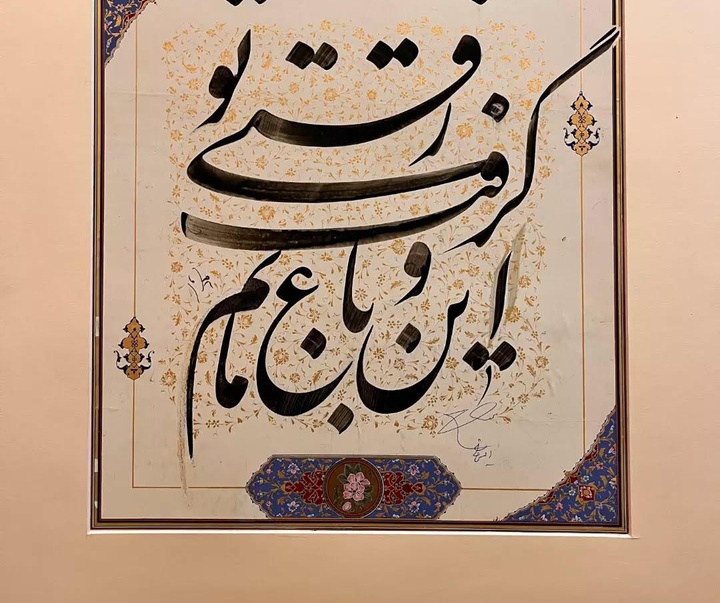 تو رفتی
و این باغ ماتم گرفت